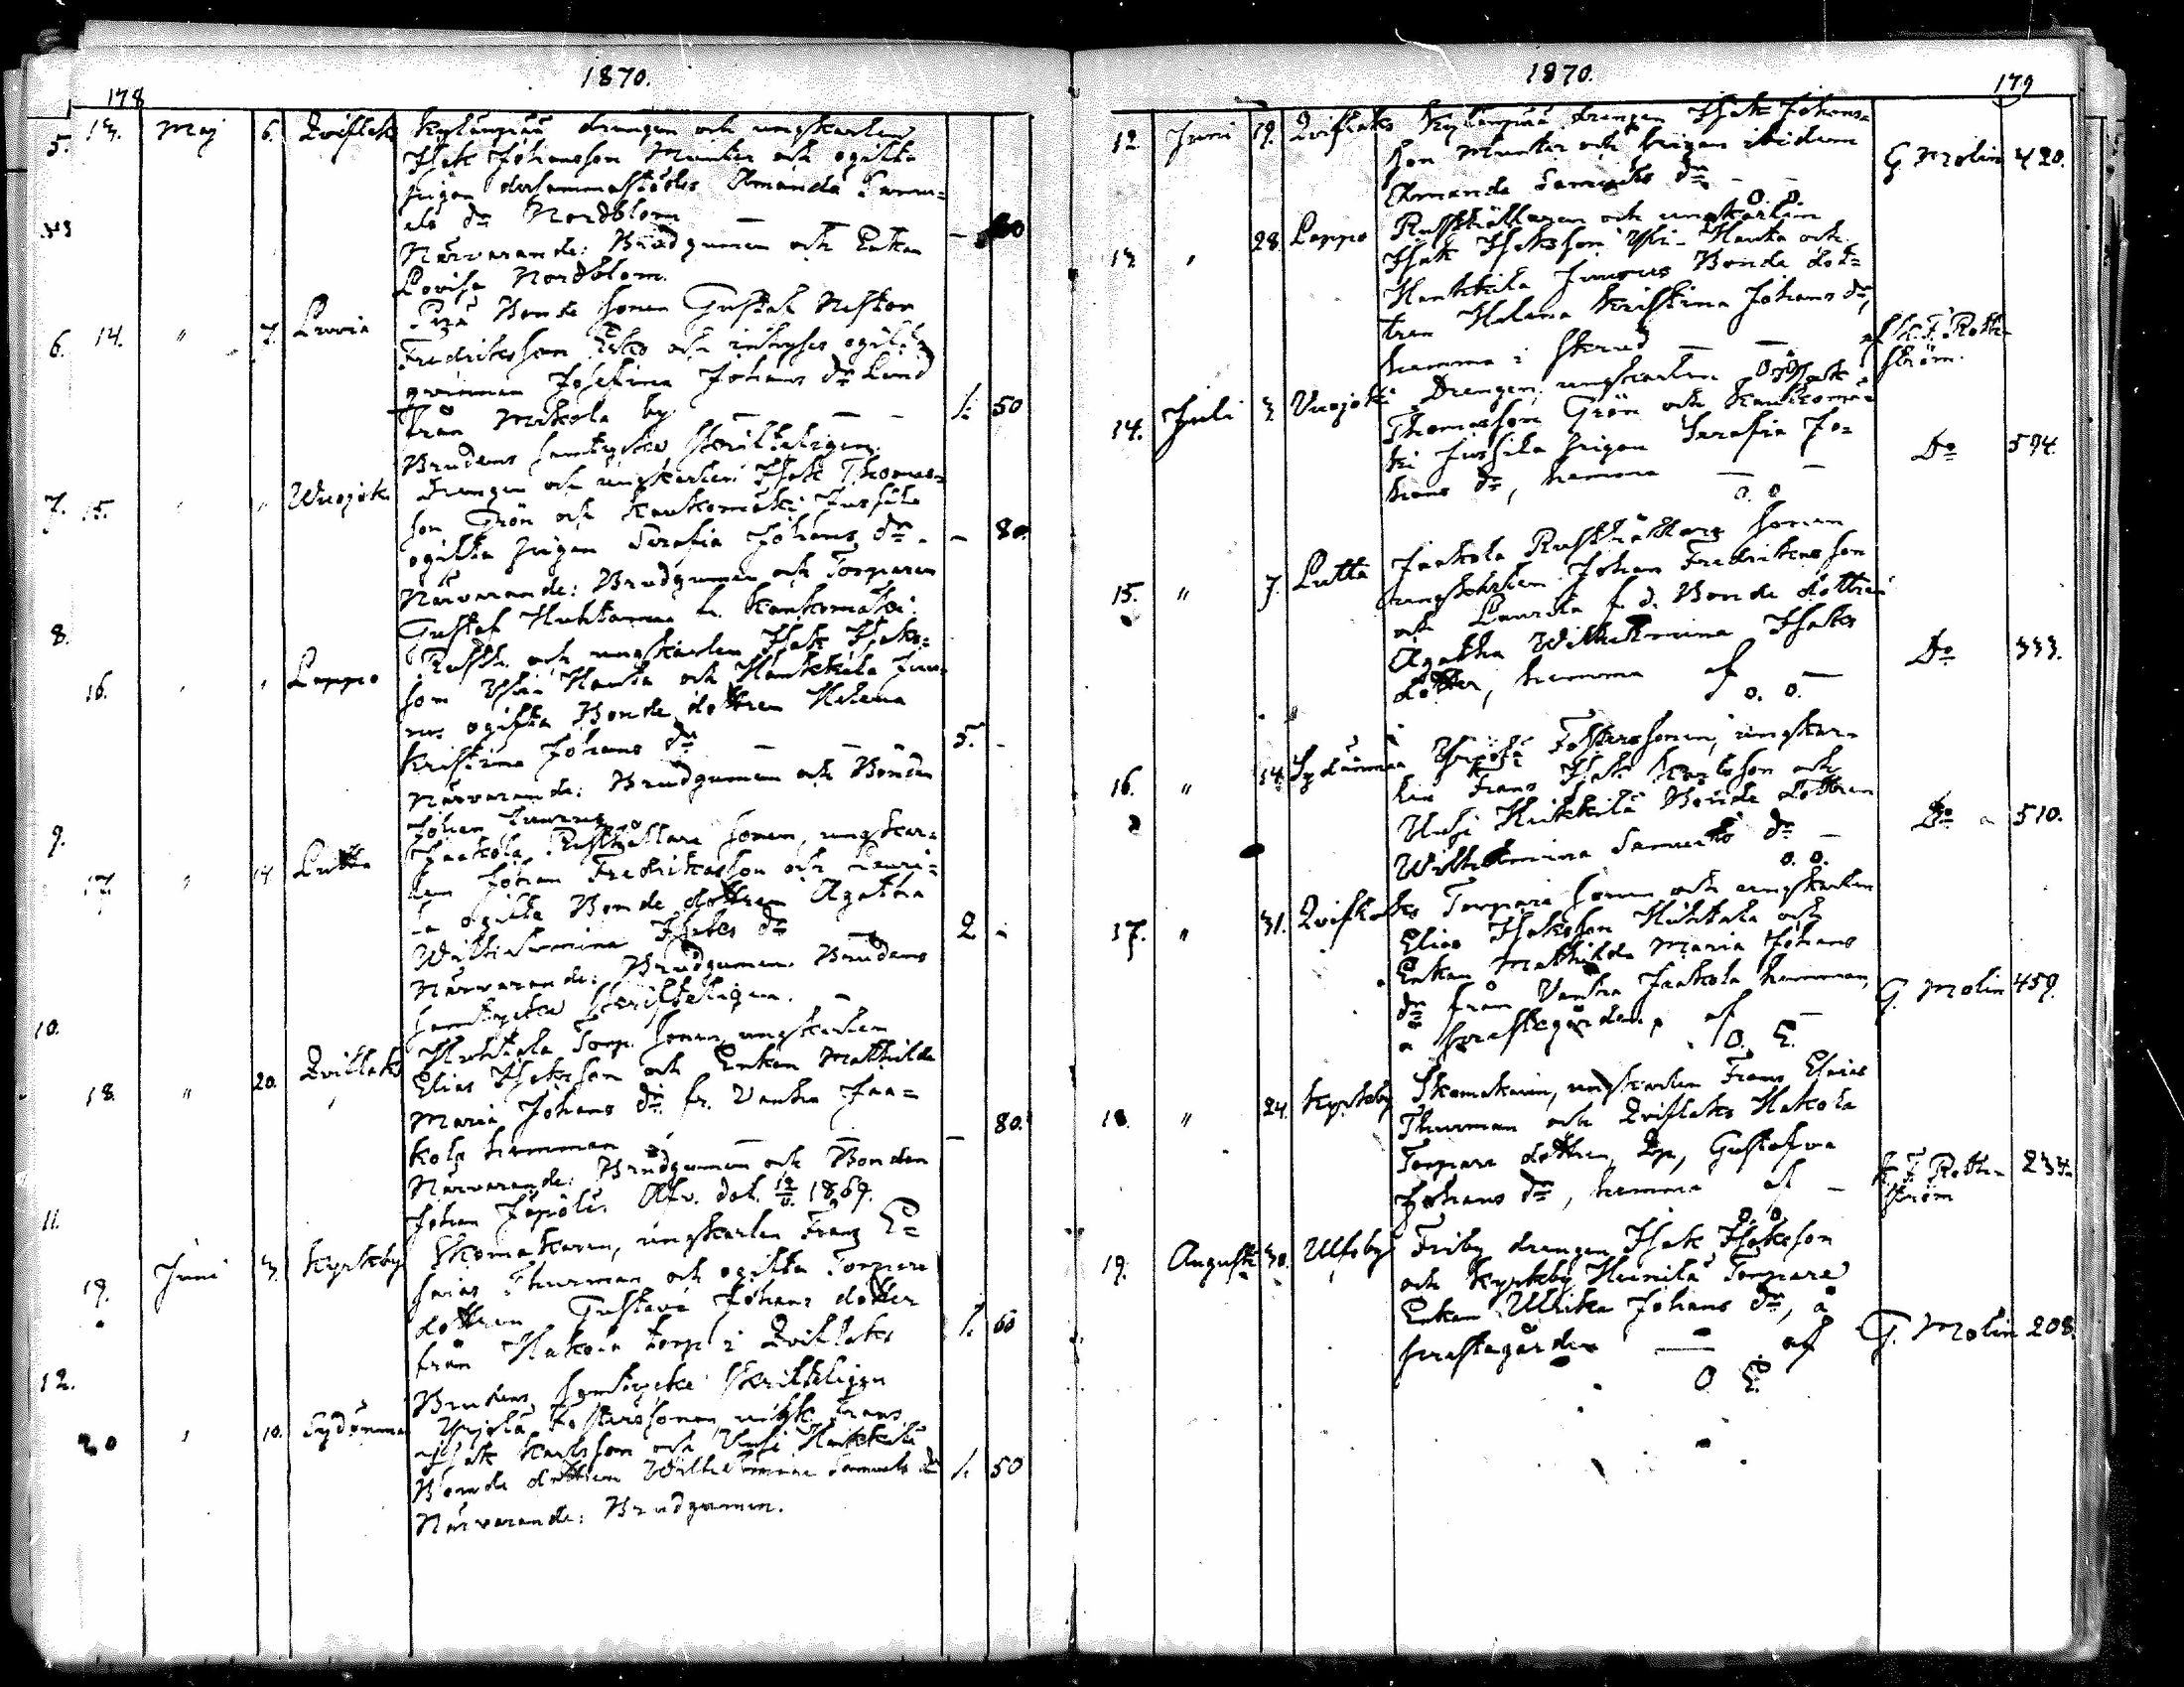 1870.
178
5. 13. Maj 6. Qviflaks drengen och ungkarlen
Isak Johansson Munter och ogifta
pigan dersammastädes Amanda Samu=
els dr Nordblom — — 80
Närvarande: Brudgumen och Enkan
Lovisa Nordblom.
6. 14. " 7. Bonde sonen Gustaf Nestor
Fredriksson och ogifta
qvinnan Josefina Johans dr Lund
från Mikola by — — 1. 50
Brudens samtycke skrifteligen.
7. 15. " " Wuojoki Drengen och ungkarlen Isak Thomas=
son Grön och Kaukomäki Jussila
ogifta pigan Serafia Johans dr - — 80.
Närvarande: Brudgumen och Torparen
Gustaf Huhtamaa fr. Kaukomäki.
8. 16. " " Lappo Rusth. och ungkarlen Isak Isaks=
son Yli Hauta och Haukkila Juni=
rus ogifta Bonde dottren Helena
Kristina Johans dr — — 5. -
Närvarande: Brudgumen och Bonden
Johan
9. 17. " 14 Lutta Jaakola Rusthållare sonen, ungkar=
len Johan Fredriksson och Lauri=
la ogifta Bonde dottren Agatha
Wilhelmina Isaks dr — 2 -
Närvarande: Brudgumen. Brudens
samtycke skrifteligen. —
10. 18. " 20. Qviflaks Huhtala Torp. sonen ungkarlen
Elias Isaksson och Enkan Mathilda
Maria Johans dr fr. Vanha Jaa=
kola hemman — — — 80.
Närvarande: Brudgumen och Bonden
Johan Jäpölä. Afv. dat. 12/11. 1869.
11. 19. Juni 3. Kyrkby Skomakaren, ungkarlen Franz E=
saias Thurman och ogifta Torpare
dottren Gustava Johans dotter
från Hakola torp i Qviflaks 1. 60
Brudens samtycke skrifteligen
12. 20 " 10. Sydänmaa Yrjölä Fostersonen, ungk. Frans
Isak Karlsson och Uusi Heikkilä
Bonde dottren Wilhelmina Samuels dr 1. 50
Närvarande: Brudgumen.
1870.
179
12. Juni 19. Qviflaks drengen Isak Johans=
son Munter och pigan ibidem
Amanda Samuels dr — — G Molin 420.
O. O.
13. " 28. Lappo Rusthållaren och ungkarlen
Isak Isaksson Yli-Hauta och
Haukkila Junirus Bonde dot=
tren Helena Kristina Johans dr,
hemma i — — af K. F. Roth=
ström.
O. O.
14. Juli 3 Vuojoki Drengen, ungkarlen Isak
Thomasson Grön och Kaukomä=
ki Jussila pigan Serafia Jo=
hans dr, hemma — — Do 594.
O. O
15. " 7. Lutta Jaakola Rusthållare sonen
ungkarlen Johan Fredriksson
och Laurila f. d. Bonde dottren
Agatha Wilhelmina Isaks
dotter, hemma af — Do 333.
O. O.
16. " 14. Sydänmaa Yrjölä Fostersonen, ungkar=
len Frans Isak Karlsson och
Uusi Heikkilä Bonde dottren
Wilhelmina Samuels dr — Do " 510.
O. O.
17. " 31. Qviflaks Torpare sonen och ungkarlen
Elias Isaksson Huhtala och
Enkan Mathilda Maria Johans
dr från Vanha Jaakola hemman,
a prestegården, af — G. Molin 459.
O. E.
18. " 24. Kyrkby Skomakaren, ungkarlen Frans Esaias
Thurman och Qviflaks Hakola
Torpare dottren, Gustafva
Johans dr, hemma af — K. F. Roth= 234.
ström
O. O.
19. Augusti 30. Ulfsby Friby drengen Isak Isaksson
och Kyrkby Heinilä Torpare
Enkan Ulrika Johans dr, å
prestegården — af G. Molin 208.
O E.